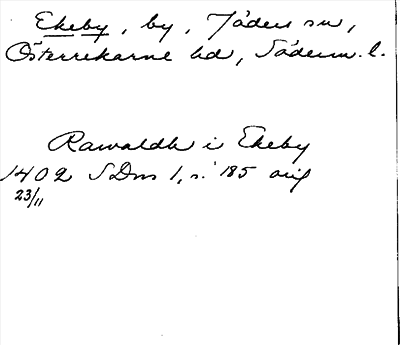 Ekeby, by, Jäders sn,
Österrekarne hd, Söderm. l.
Rawaldh i Ekeby
1402 SDns 1, s. 185 orig
23/11